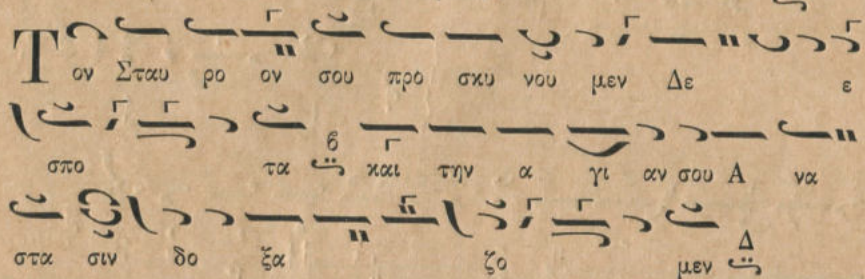 Τον Σταυ ρο ον σου προ σκυ νου μεν Δε ε
σπο τα β και την α γι αν σου Α να
στα σιν δο ξα ζο μεν Δ